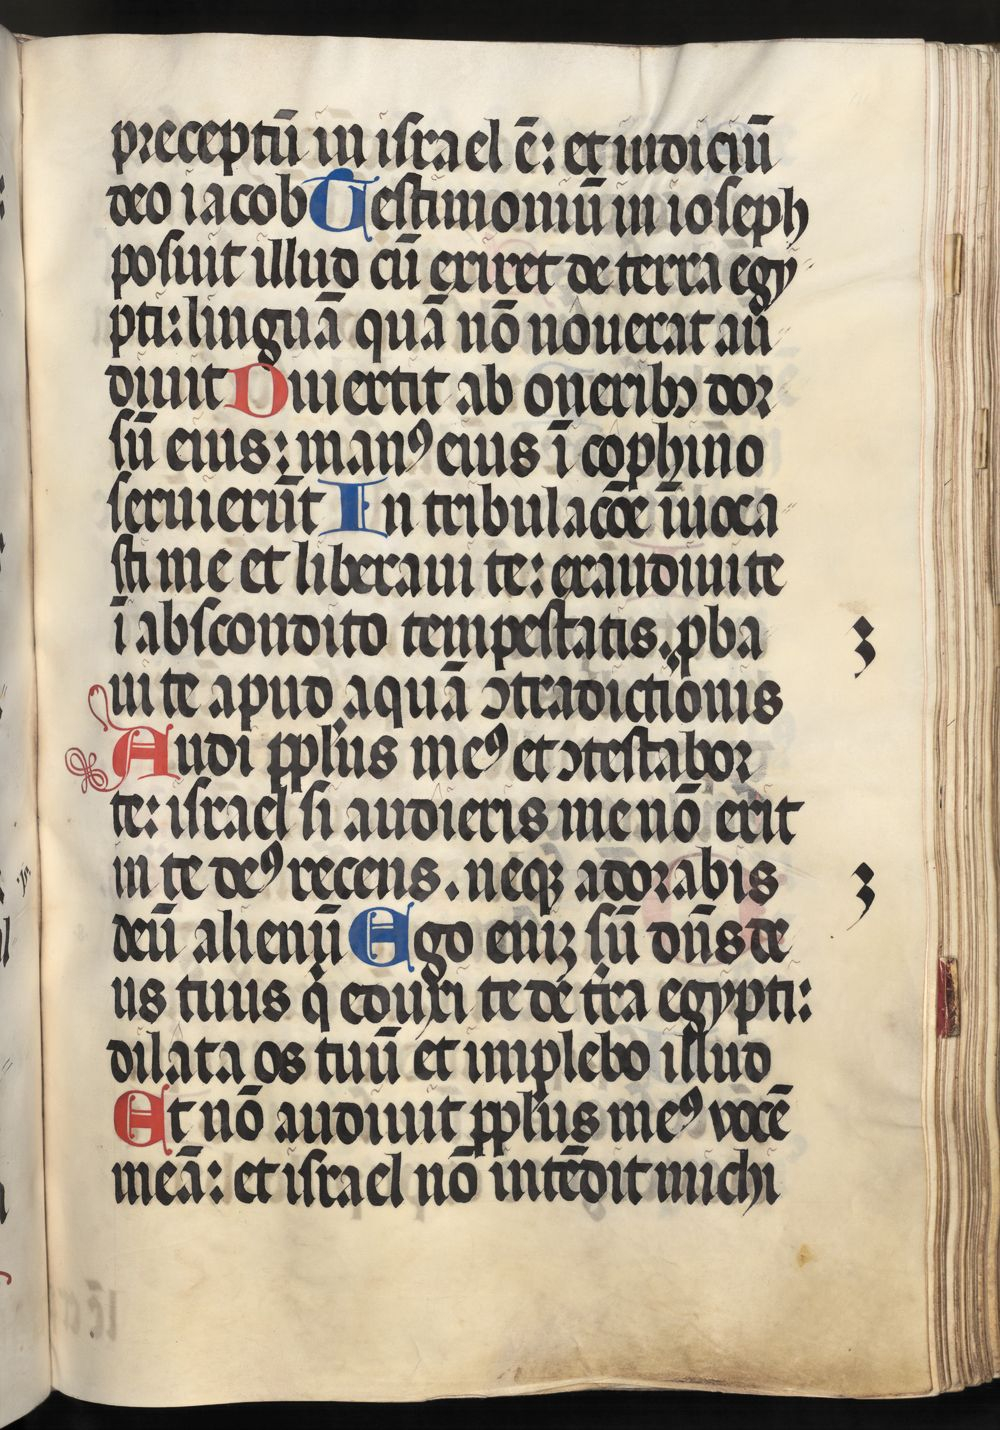 preceptū in israel ē: et iudiciū
deo iacob Testimoniū in ioseph
posuit illud cū exiret de terra egy
pti: linguā quā nō nouerat au
diuit Diuertit ab oneribꝫ dor
sū eius: manꝰ eius ī cophino
seruierūt In tribulacōe īuoca
sti me et liberaui te: exaudiui te
ī abscondito tempestatis. ꝓba
ui te apud aquā ꝯtradictionis
Audi ppl'us meꝰ et ꝯtestabor
te: israel si audieris me nō erit
in te deꝰ recens. neqꝫ adorabis
deū alienū Ego eniꝫ sū dn̄s de
us tuus q̇ eduxi te de t̓ra egypti:
dilata os tuū et implebo illud
Et nō audiuit ppl'us meꝰ vocē
meā: et israel nō intēdit michi